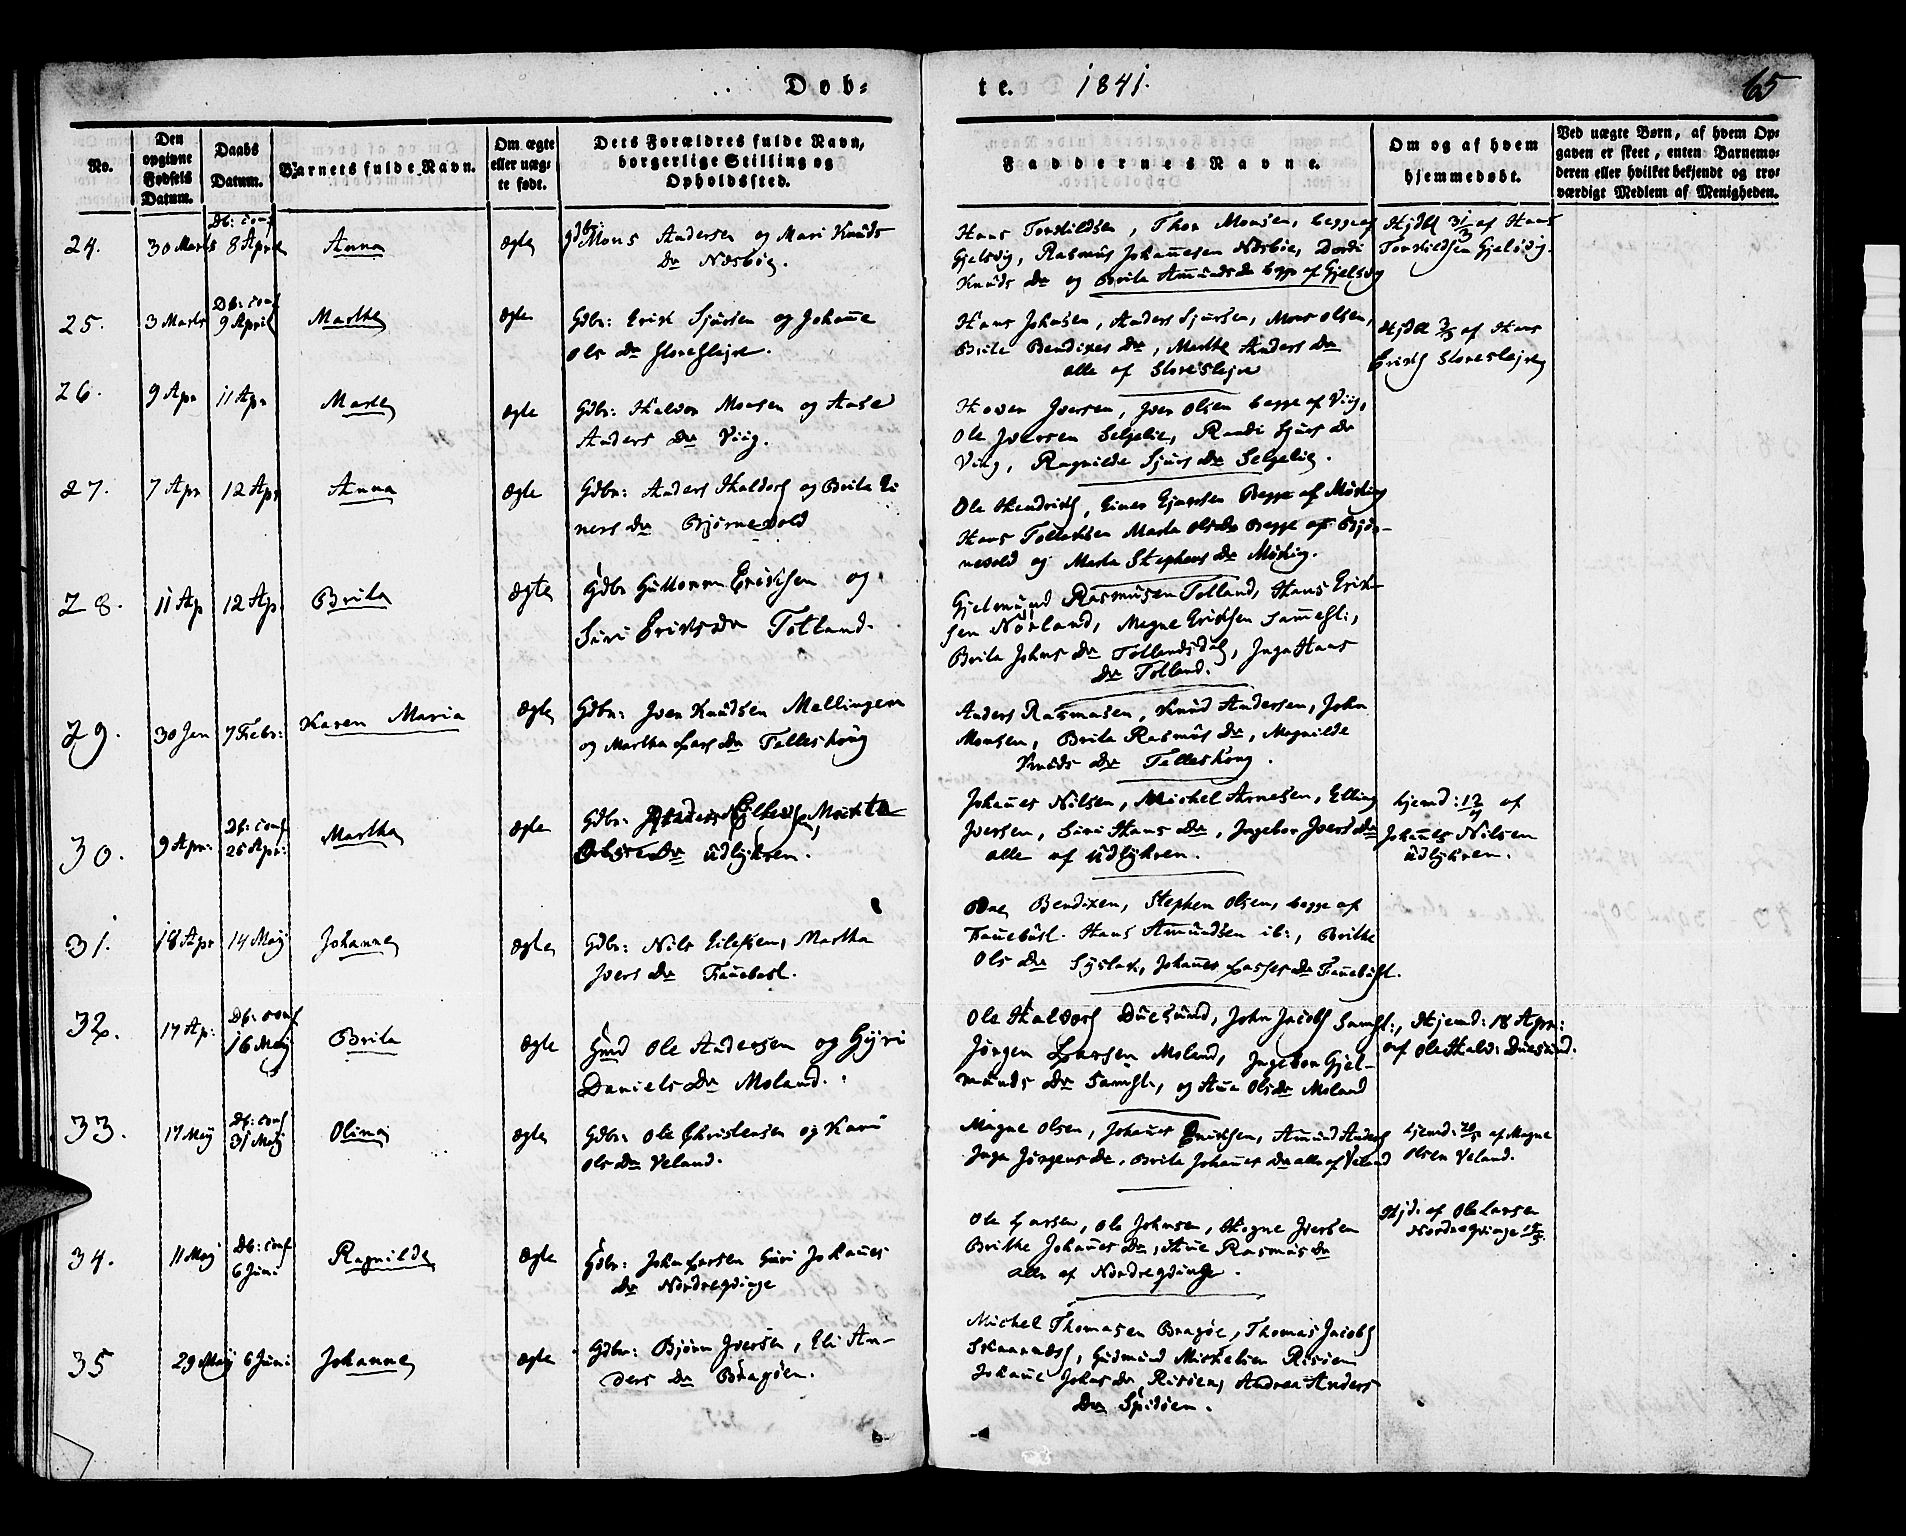 Døb-
te. 1841.
65
No.
Den opgivne Fødsels Datum.
Daabs Datum.
Barnets fulde Navn.
Om ægte eller uægte født.
Dets Forældres fulde Navn, borgerlige Stilling og Opholdssted.
Faddernes Navne.
Om og af hvem hjemmedøbt.
Ved uægte Børn, af hvem Opgaven er skeet, enten Barnemoderen eller hvilket bekjendt og troværdigt Medlem af Menigheden.
24. 30 Marts Db: conf 8 April Anna Ægte
Gdbr Mons Andersen og Mari Knuds
Dr Næsbøe.
Hans Torkildsen, Thor Monsen, begge af
Gjelsvig, Rasmus Johannesen Næsbøe, Dordi
Knuds Dr og Brita Amunds Dr begge af Gjelsvig
Hjdbt 31/3 af Hans
Torkildsen Gjelsvig.
25. 3 Marts Db: conf 9 April Marthe Ægte
Gdbr: Erik Sjursen og Johanne
Ols Dr
Hans Johnsen, Anders Sjursen, Mons Olsen,
Brite Bendixes Dr, Marthe Anders Dr
alle af
Hjdbt af Hans
26. 9 Apr 11 Apr Marte Ægte
Gdbr: Halvor Monsen og Anne
Anders Dr Viig.
Iversen, Iver Olsen begge af Viig,
Ole Iversen Seljelie, Randi Sjurs Dr
Viig, Ragnilde Sjurs Dr Seljelie.
27. 7 Apr 12 Apr Anna Ægte
Gdbr: Anders Haldors og Brita Ei
ners Dr Bjørnevold
Ole Hendriks, Einer Ejnersen Begge af
Hans Tollefsen Marta Ols Dr Begge af Bjør-
nevold og Marta Stephens Dr
28. 11 Ap 12 Ap. Brita Ægte
Gdbr Guttorm Eriksen og
Siri Eriks Dr Totland.
Gjelmund Rasmusen Totland, Hans Erik-
sen Nørland, Magne Eriksen Sammest:,
Brita Johns Dr Totlandsdal, Inga Hans
Dr Totland.
29. 30 Jan 7 Febr: Karen Maria Ægte
Gdbr: Iver Knudsen Mellingen
og Martha Lars Dr Telleshoug
Anders Rasmusen, Knud Andersen, John
Monsen, Brita Rasmus Dr, Magnilde
Knuds Dr Telleshoug.
30. 9 Apr: Db: conf 25 Apr: Martha Ægte
Gdbr:
Dr Udlykren.
Johannes Nilsen, Michel Arnesen, Elling
Iversen, Siri Hans Dr, Ingebor Ivers Dr
alle af Udlykren.
hjemd: 12/4 af
Johannes Nilsen
Udlykren.
31. 18 Apr 14 May Johanne Ægte
Gdbr: Nils Eilefsen, Martha
Ivers Dr
Bendixen, Stephen Olsen, begge af
Hans Amundsen ib:, Brithe
Ols Dr Johannes Dr
32. 17 Ap: Db: conf 16 May Brita Ægte
Gmd Ole Andersen og Gyri
Daniels Dr Moland.
Ole Haldors Duesund, John Jacobs Samst:,
Jørgen Larsen Moland, Ingebor Gjel-
munds Dr Samst:, og Ane Ols Dr Moland
Hjemd: 18 Apr:
af Ole Hald: Duesund.
33. 17 May Db: conf 31 May Olina Ægte
Gdbr: Ole Christensen og Kari
Ols Dr Veland.
Magne Olsen, Johannes Amund Anders
Inga Jørgens Dr, Brita Johannes Dr alle af Veland
hjemd: 20/5 af Magne
Olsen Veland.
34. 11 May Db: conf 6 Juni Ragnilde Ægte
Gdbr: John Larsen Guri Johannes
Dr Nordreqvinge
Ole Larsen, Ole Johnsen, Hogne Iversen
Brithe Johannes Dr, Ane Rasmus Dr
alle af Nordreqvinge.
Hjd. af Ole Larsen
Nordreqvinge
35 29 May 6 Juni Johanne Ægte
Gdbr: Bjørn Iversen, Eli An-
ders Dr Bragøen.
Michel Thomasen Bragøe, Thomas Jacobs
Gudmund Michelsen Risøen
Johanne Johns Dr Risøen, Andrea Anders
Dr Spidsøen.